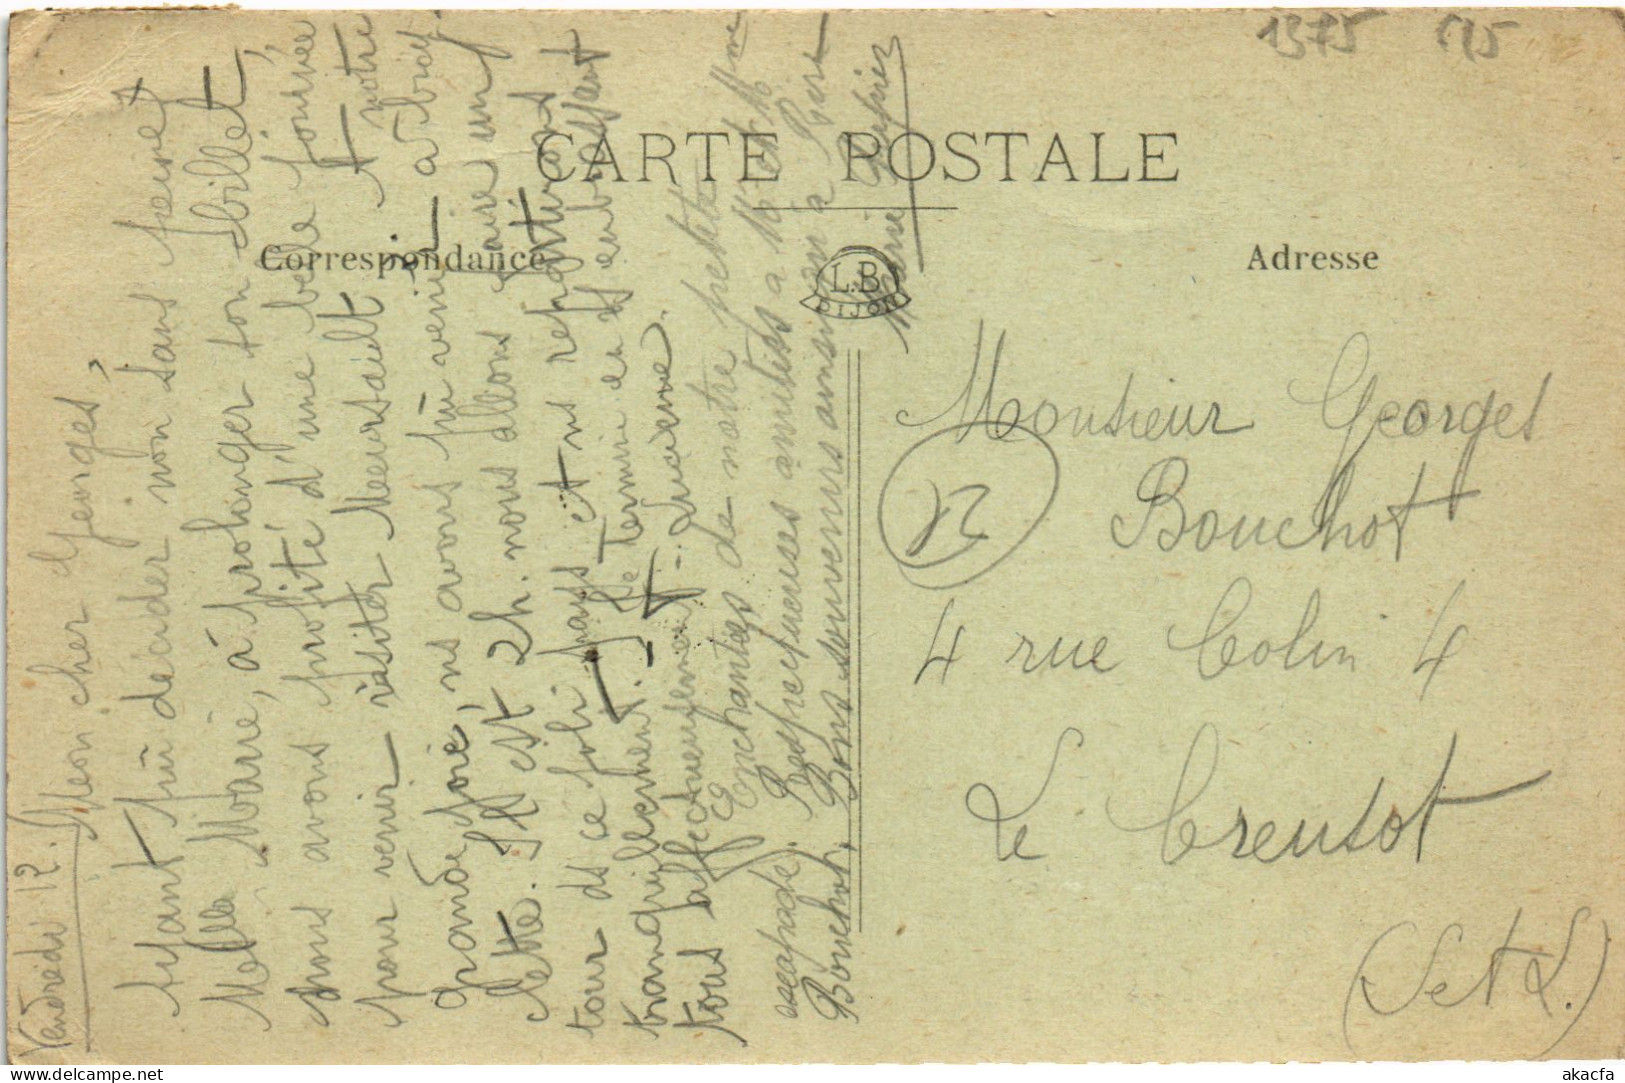 1375
CARTE POSTALE
Correspondance
Adresse
L.B
DIJON
Vendredi 12. Mon cher Georges,
Ayant pû décider non sans peine
Melle Marie, à prolonger son billet,
nous avons profité d'une belle journée
pour venir visiter Meursault. A notre
grande joie, ns avons pû venir à bicy-
clette. Il est 2h. nous allons faire un
tour ds ce joli pays et ns repartirons
tranquillement. Je Termine en vs embrassant
tous affectueusement. Lucienne.
Enchantées de notre petite
escapade. Respectueuses amitiés à Mr et Mme
Bouchot, Bons souvenirs ainsi qu'à
Marie
Monsieur Georges
Bouchot
4 rue Colin 4
Le Creusot
(S et L.)
akacfa